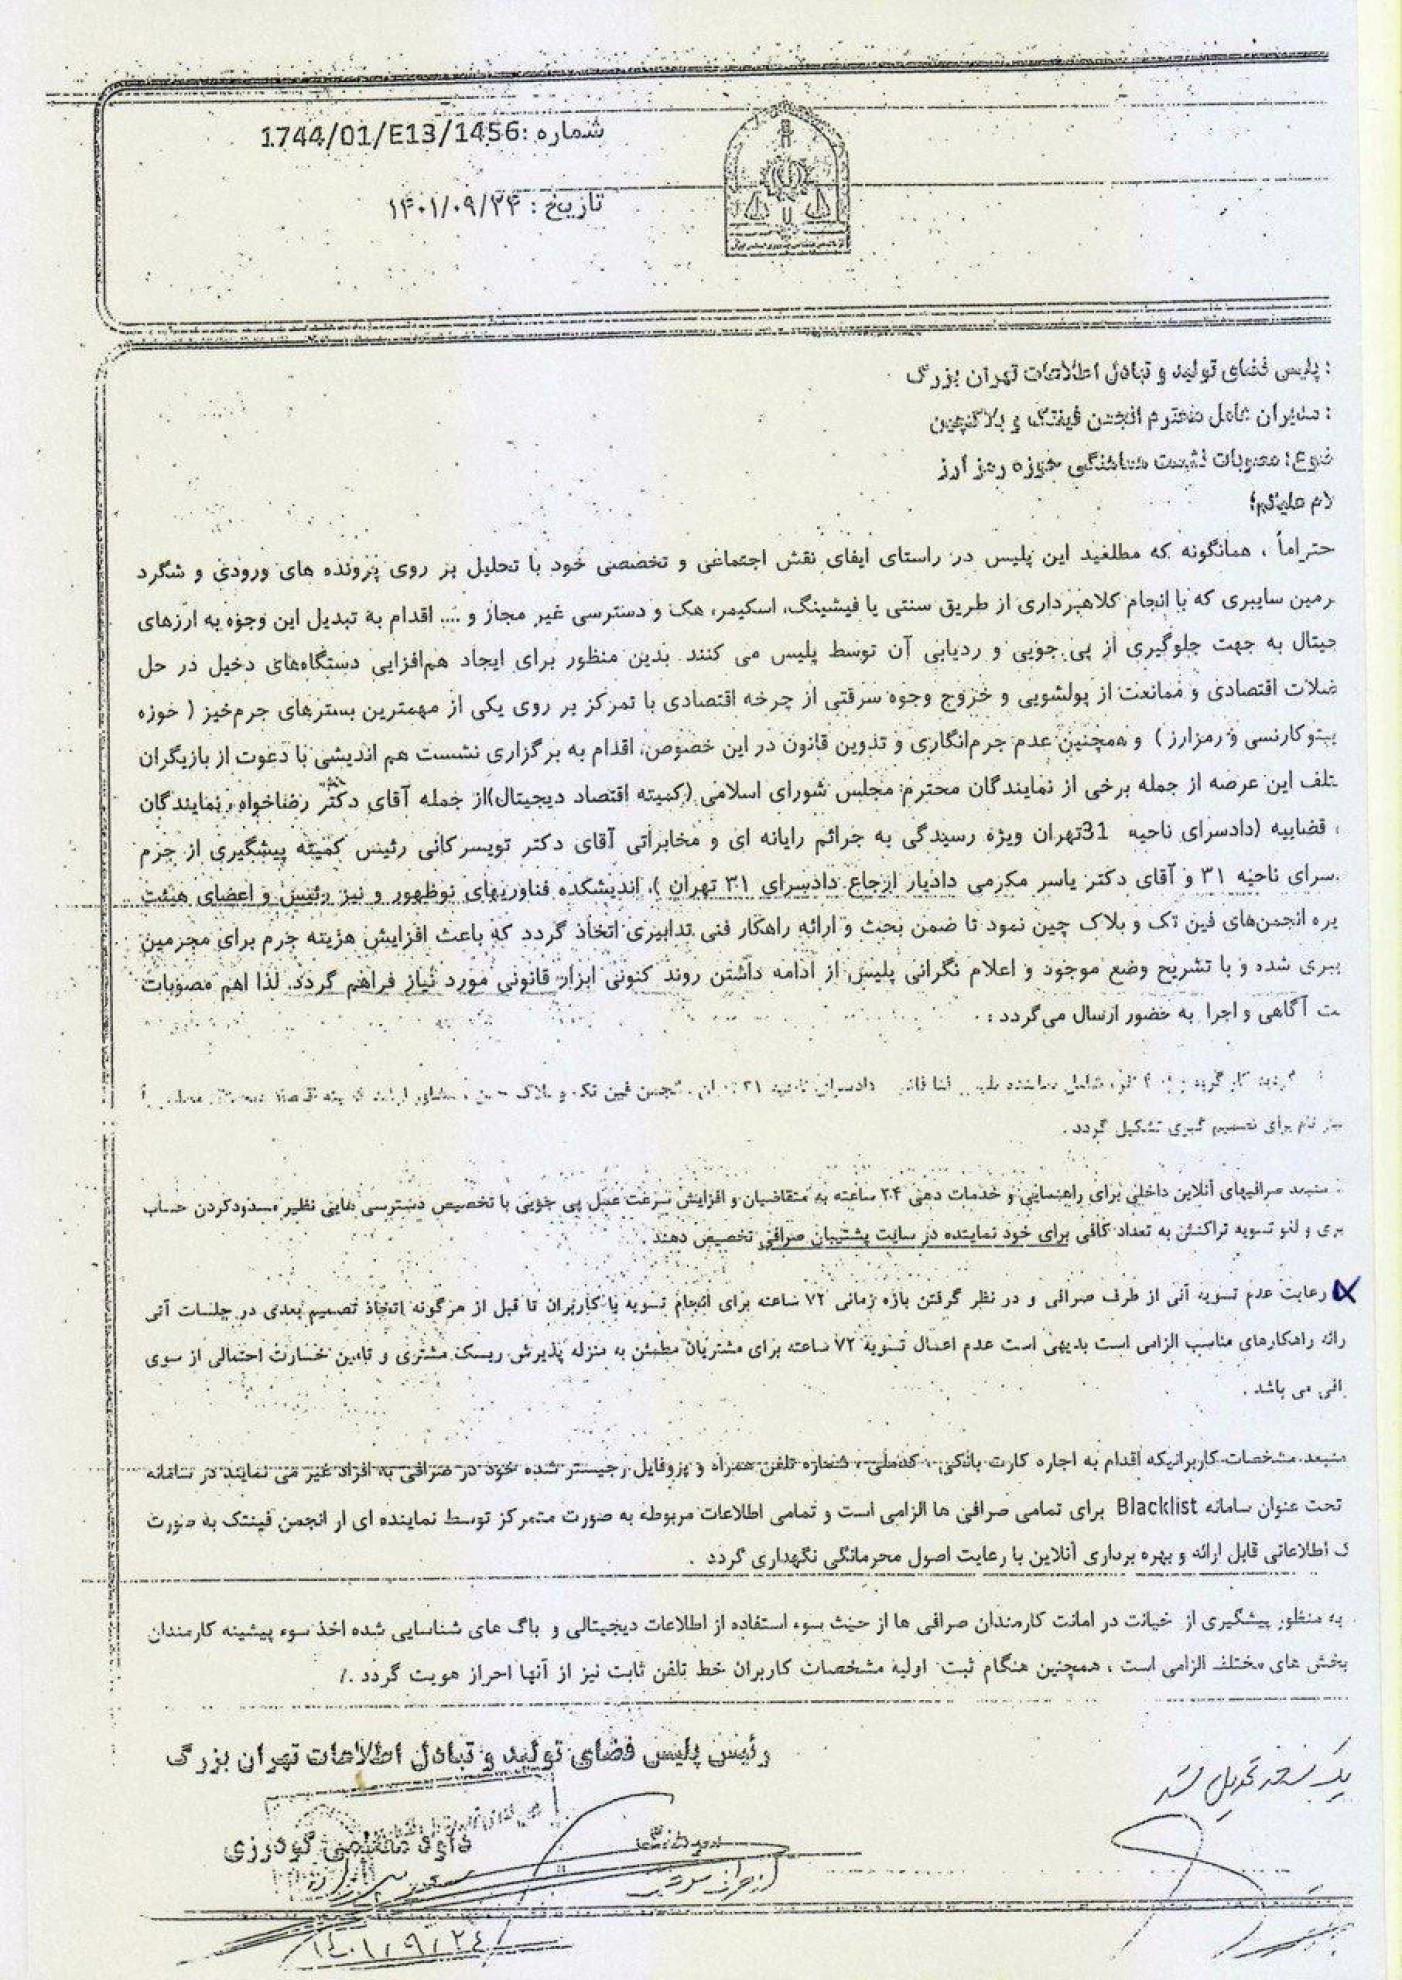 شماره :1744/01/E13/1456
تاریخ : ۱۴۰۱/۰۹/۲۴
: پلیس فضای تولید و تبادل اطلاعات تهران بزرگ
: مدیران عامل محترم انجمن فینتک و بلاکچین
ضوع: مصوبات نشست هماهنگی حوزه رمز ارز
لام علیکم؛
حتراماً ، همانگونه که مطلعید این پلیس در راستای ایفای نقش اجتماعی و تخصصی خود با تحلیل بر روی پرونده های ورودی و شگرد
رمین سایبری که با انجام کلاهبرداری از طریق سنتی یا فیشینگ، اسکیمر، هک و دسترسی غیر مجاز و .... اقدام به تبدیل این وجوه به ارزهای
جیتال به جهت جلوگیری از پی جویی و ردیابی آن توسط پلیس می کنند. بدین منظور برای ایجاد هم‌افزایی دستگاه‌های دخیل در حل
ضلات اقتصادی و ممانعت از پولشویی و خروج وجوه سرقتی از چرخه اقتصادی با تمرکز بر روی یکی از مهمترین بسترهای جرم‌خیز ( حوزه
یپتوکارنسی و رمزارز ) و همچنین عدم جرم‌انگاری و تدوین قانون در این خصوص، اقدام به برگزاری نشست هم اندیشی با دعوت از بازیگران
تلف این عرصه از جمله برخی از نمایندگان محترم مجلس شورای اسلامی (کمیته اقتصاد دیجیتال)از جمله آقای دکتر رضاخواه، نمایندگان
، قضاییه (دادسرای ناحیه 31تهران ویژه رسیدگی به جرائم رایانه ای و مخابراتی آقای دکتر تویسرکانی رئیس کمیته پیشگیری از جرم
سرای ناحیه ۳۱ و آقای دکتر یاسر مکرمی دادیار ارجاع دادسرای ۳۱ تهران )، اندیشکده فناوریهای نوظهور و نیز رئیس و اعضای هیئت
یره انجمن‌های فین تک و بلاک چین نمود تا ضمن بحث و ارائه راهکار فنی تدابیری اتخاذ گردد که باعث افزایش هزینه جرم برای مجرمین
یبری شده و با تشریح وضع موجود و اعلام نگرانی پلیس از ادامه داشتن روند کنونی ابزار قانونی مورد نیاز فراهم گردد. لذا اهم مصوبات
ت آگاهی و اجرا به حضور ارسال می‌گردد :
کار گروه شامل نماینده دادسرای ناحیه ۳۱ انجمن فین تک و بلاک
برای تصمیم گیری تشکیل گردد .
. منبعد صرافیهای آنلاین داخلی برای راهنمایی و خدمات دهی ۲۴ ساعته به متقاضیان و افزایش سرعت عمل پی جویی با تخصیص دسترسی هایی نظیر مسدودکردن حساب
بری و لغو تسویه تراکنش به تعداد کافی برای خود نماینده در سایت پشتیبان صرافی تخصیص دهند .
رعایت عدم تسویه آنی از طرف صرافی و در نظر گرفتن بازه زمانی ۷۲ ساعته برای انجام تسویه با کاربران تا قبل از هرگونه اتخاذ تصمیم بعدی در جلسات آتی
رائه راهکارهای مناسب الزامی است بدیهی است عدم اعمال تسویه ۷۲ ساعته برای مشتریان مطمئن به منزله پذیرش ریسک مشتری و تامین خسارت احتمالی از سوی
رافی می باشد .
منبعد مشخصات کاربرانیکه اقدام به اجاره کارت بانکی ، کدملی ، شماره تلفن همراه و پروفایل رجیستر شده خود در صرافی به افراد غیر می نمایند در سامانه
تحت عنوان سامانه Blacklist برای تمامی صرافی ها الزامی است و تمامی اطلاعات مربوطه به صورت متمرکز توسط نماینده ای از انجمن فینتک به صورت
ک اطلاعاتی قابل ارائه و بهره برداری آنلاین با رعایت اصول محرمانگی نگهداری گردد .
. به منظور پیشگیری از خیانت در امانت کارمندان صرافی ها از حیث سوء استفاده از اطلاعات دیجیتالی و باگ های شناسایی شده اخذ سوء پیشینه کارمندان
بخش های مختلف الزامی است ، همچنین هنگام ثبت اولیه مشخصات کاربران خط تلفن ثابت نیز از آنها احراز هویت گردد ./
رئیس پلیس فضای تولید و تبادل اطلاعات تهران بزرگ
یک نسخه تحویل شد
داود معظمی گودرزی
۱۴۰۱/۹/۲۴